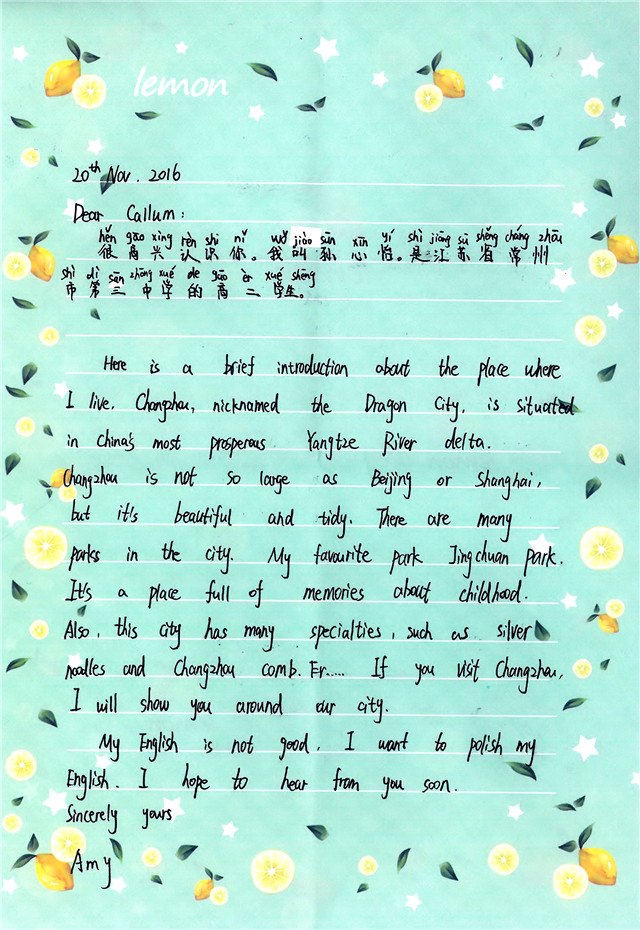 lemon
20th Nov. 2016
Dear Callum:
hěn gāo xìng rèn shi nǐ wǒ jiào sūn xīn yí shì jiāng sū shěng cháng zhōu
很高兴认识你。我叫孙心怡。是江苏省常州
shì dì sān zhōng xué de gāo èr xué shēng
市第三中学的高二学生。
Here is a brief introduction about the place where
I live. Changzhou, nicknamed the Dragon City, is situated
in China's most prosperous Yangtze River delta.
Changzhou is not so large as Beijing or Shanghai,
but it's beautiful and tidy. There are many
parks in the city. My favourite park Jingchuan park.
It's a place full of memories about childhood.
Also, this city has many specialties, such as silver
noodles and Changzhou comb. Er..... If you visit Changzhou,
I will show you around our city.
My English is not good. I want to polish my
English. I hope to hear from you soon.
Sincerely yours
Amy